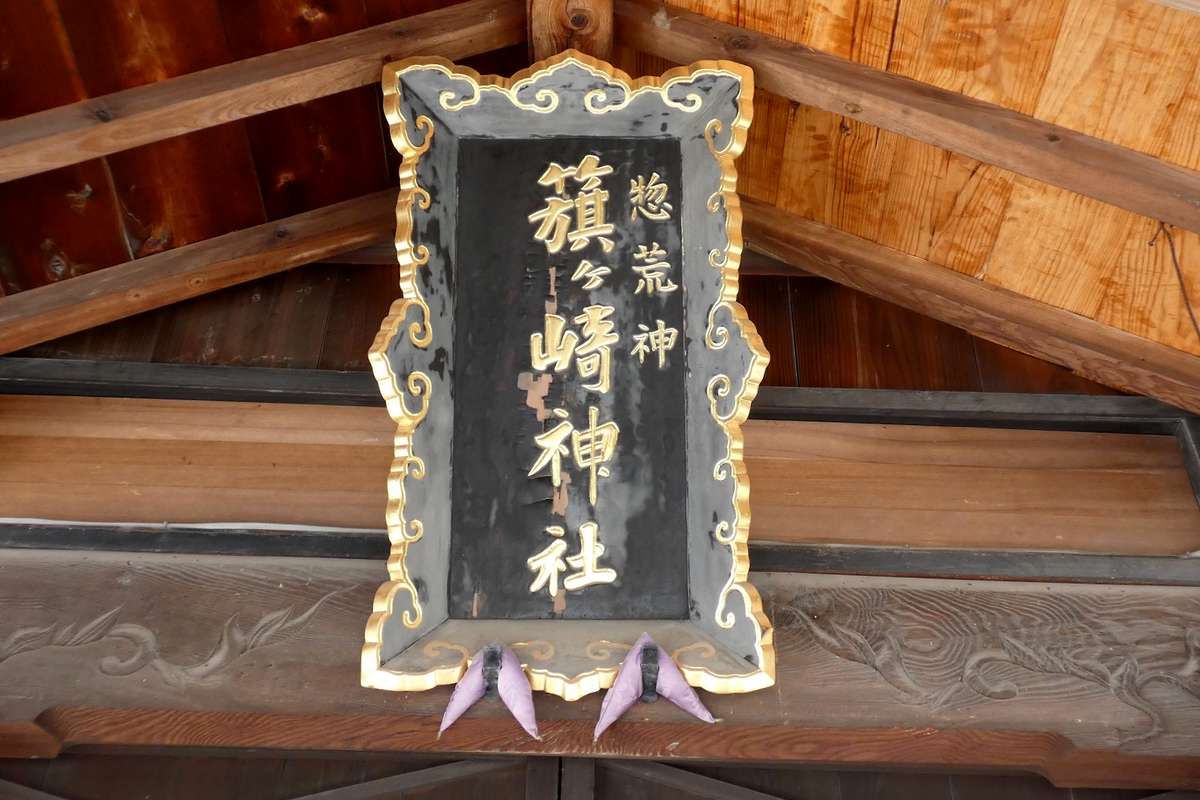 惣荒神
籏ヶ崎神社